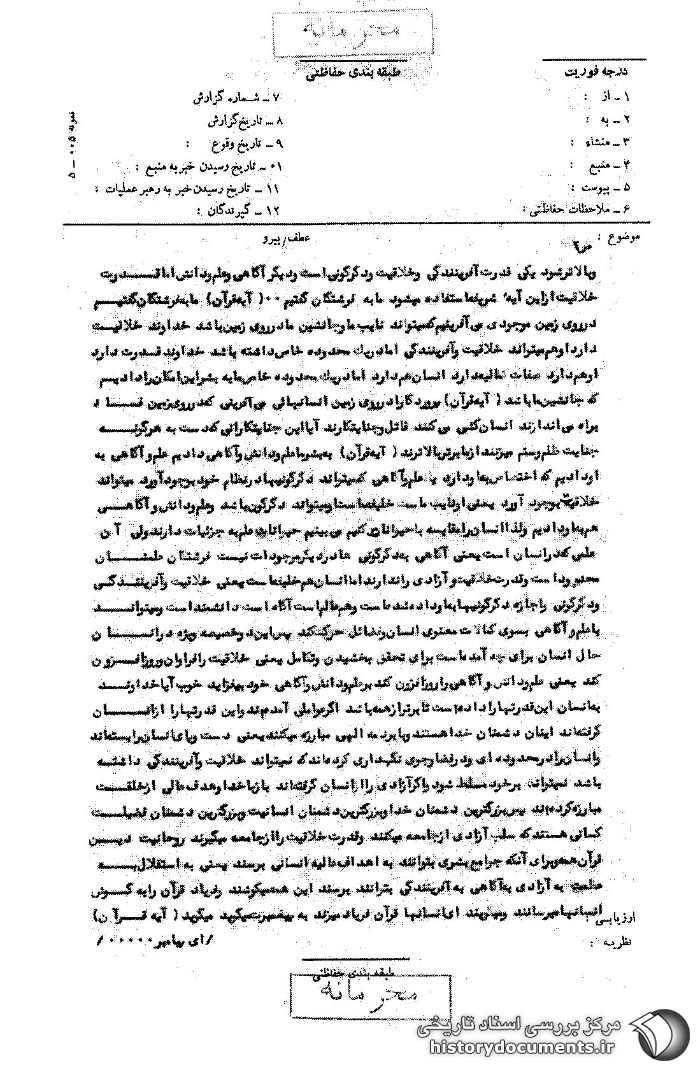 محرمانه
درجه فوریت
طبقه بندی حفاظتی
۱ ـ از :
۷ ـ شماره گزارش
۲ ـ به :
۸ ـ تاریخ گزارش
۳ ـ منشاء :
۹ ـ تاریخ وقوع :
۴ ـ منبع :
۱۰ـ تاریخ رسیدن خبر به منبع :
۵ ـ پیوست :
۱۱ ـ تاریخ رسیدن خبر به رهبر عملیات :
۶ ـ ملاحظات حفاظتی :
۱۲ ـ گیرندگان :
موضوع :
عطف/پیرو
وبالاترشود یکی قدرت آفرینندگی وخلاقیت ودگرگونی است ودیگر آگاهی وعلم ودانش اما قدرت
خلاقیت ازاین آیه شریفه استفاده میشود ما به فرشتگان گفتیم ۰۰( آیه قرآن) ما به فرشتگان گفتیم
درروی زمین موجودی می آفرینیم که میتواند نایب ما وجانشین ما در روی زمین باشد خداوند خلاقیت
دارد او هم میتواند خلاقیت وآفرینندگی اما در یک محدوده خاص داشته باشد خداوند قدرت دارد
او هم دارد صفات عالیه دارد انسان هم دارد اما در یک محدوده خاص ما به بشر این امکان را دادیم
که جانشین ما باشد ( آیه قرآن) پروردگارا در روی زمین انسانهائی می آفرینی که در روی زمین فساد
براه می اندازند انسان کشی می کنند قاتل وجنایتکارند آیا این جنایتکارانی که دست به هرگونه
جنایت ظلم وستم میزنند از ما برتر وبالاترند ( آیه قرآن) به بشر ما علم ودانش وآگاهی دادیم علم وآگاهی به
او دادیم که اختصاص به او دارد با علم وآگاهی که میتواند دگرگونیها در نظام خود بوجود آورد میتواند
خلاقیت بوجود آورد یعنی او نایب ماست خلیفه ماست ومیتواند دگرگون باشد وعلم ودانش وآگاهی
هم به او دادیم ولذا انسان را مقایسه با حیوانات کنیم می بینیم حیوانات علم به جزئیات دارند ولی آن
علمی که در انسان است یعنی آگاهی به دگرگونی ها در دیگر موجودات نیست فرشتگان علمشان
محدود است وقدرت خلاقیت وآزادی را ندارند اما انسان هم خلیفه ماست یعنی خلاقیت وآفرینندگی
ودگرگونی را اجازه دگرگونیها به او داده شده است وهم عالم است آگاه است دانشمند است ومیتواند
با علم وآگاهی بسوی کمالات معنوی انسان وفضائل حرکت کند پس این دو خصیصه ویژه در انسان
حال انسان برای چه آمده است برای تحقق بخشیدن وتکامل یعنی خلاقیت را فراوان وروزافزون
کند یعنی علم ودانش وآگاهی را روزافزون کند بر علم ودانش وآگاهی خود بیفزاید خوب آیا خداوند
به انسان این قدرتها را داده است تا برتر از همه باشد اگر عواملی آمدند واین قدرتها را از انسان
گرفته اند اینان دشمنان خدا هستند وبا برنامه الهی مبارزه میکنند یعنی دست وپای انسان را بسته اند
وانسان را در محدوده ای ودر فضا وجوی نگهداری کرده اند که نمیتواند خلاقیت وآفرینندگی داشته
باشد نمیتواند بر خود مسلط شود واگر آزادی را از انسان گرفته اند با خدا وهدف عالی از خلقت
مبارزه کرده اند پس بزرگترین دشمنان خدا وبزرگترین دشمنان انسانیت وبزرگترین دشمنان فضیلت
کسانی هستند که سلب آزادی از جامعه میکنند وقدرت خلاقیت را از جامعه میگیرند روحانیت دین
قرآن همه برای آنکه جوامع بشری بتوانند به اهداف عالیه انسانی برسند یعنی به استقلال به
به آزادی به آگاهی به آفرینندگی بتوانند برسند این همه میکوشند وفریاد قرآن را به گوش
انسانها میرسانند ومیگویند ای انسانها قرآن فریاد میزند به پیغمبرش میگوید میگوید ( آیه قرآن)
/ای پیامبر ۰۰۰۰۰/
ارزیابی :
نظریه :
طبقه بندی حفاظتی
محرمانه
مرکز بررسی اسناد تاریخی
historydocuments.ir